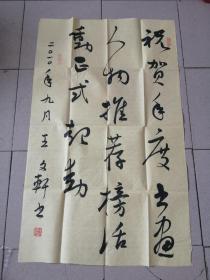 祝贺年度书画
人物推荐榜活
动正式起动
二〇一〇年九月王文轩书